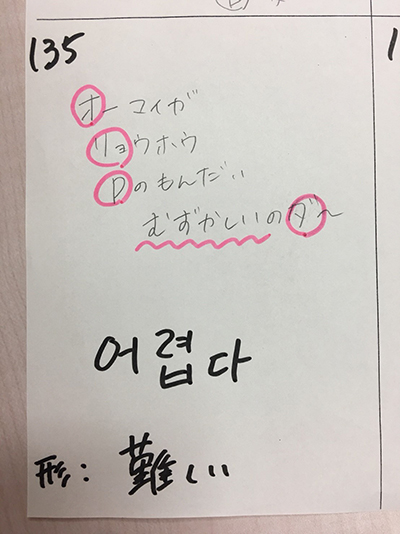 135
オーマイガ
リョウホウ
Dのもんだい
むずかしいのダ〜
어렵다
形: 難しい